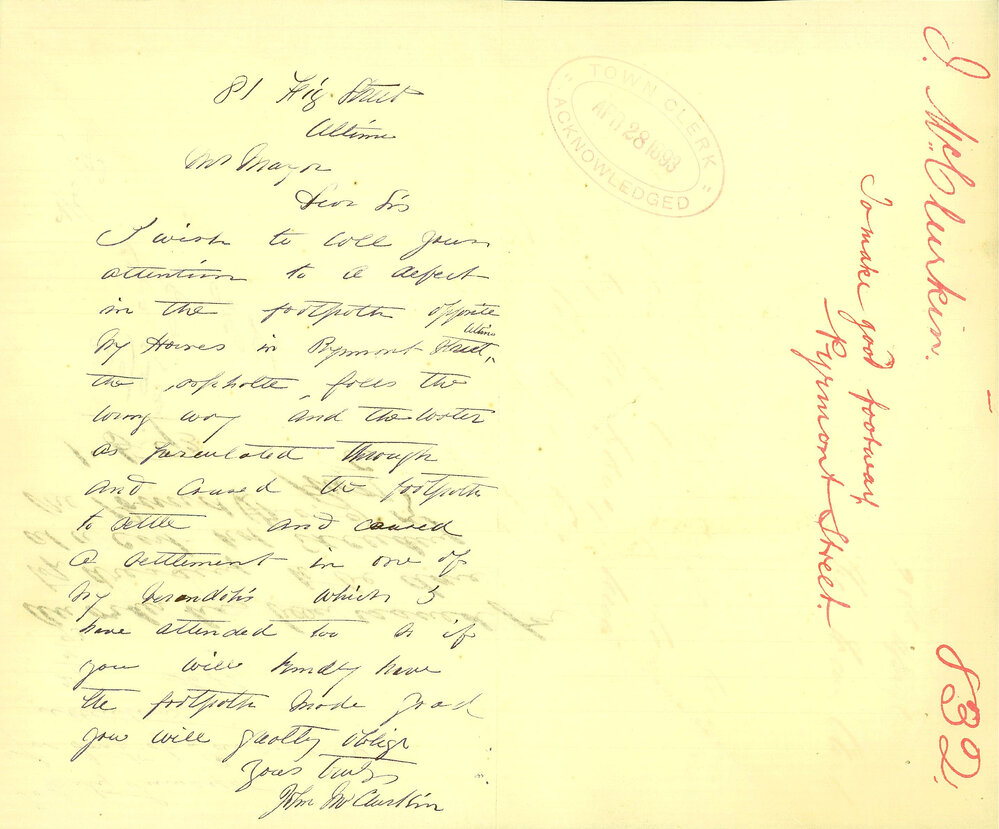 81 Hig Street
Ultimo
Mr Mayor
Dear Sir
I wish to call your
attention to a defect
in the footpath oppsite
My Houses in Pyrmont Street, Ultimo
the asphalte falls the
wrong way and the water
as perculated through
and caused the footpath
to settle and caused
a settlement in one of
my verandahs which I
have attended too & if
you will kindly have
the footpath made good
you will greatly oblige
yours truly
John McClurkin
"TOWN CLERK"
APR 28 1893
ACKNOWLEDGED
J. McClurkin.
To make good footway,
Pyrmont Street.
832.